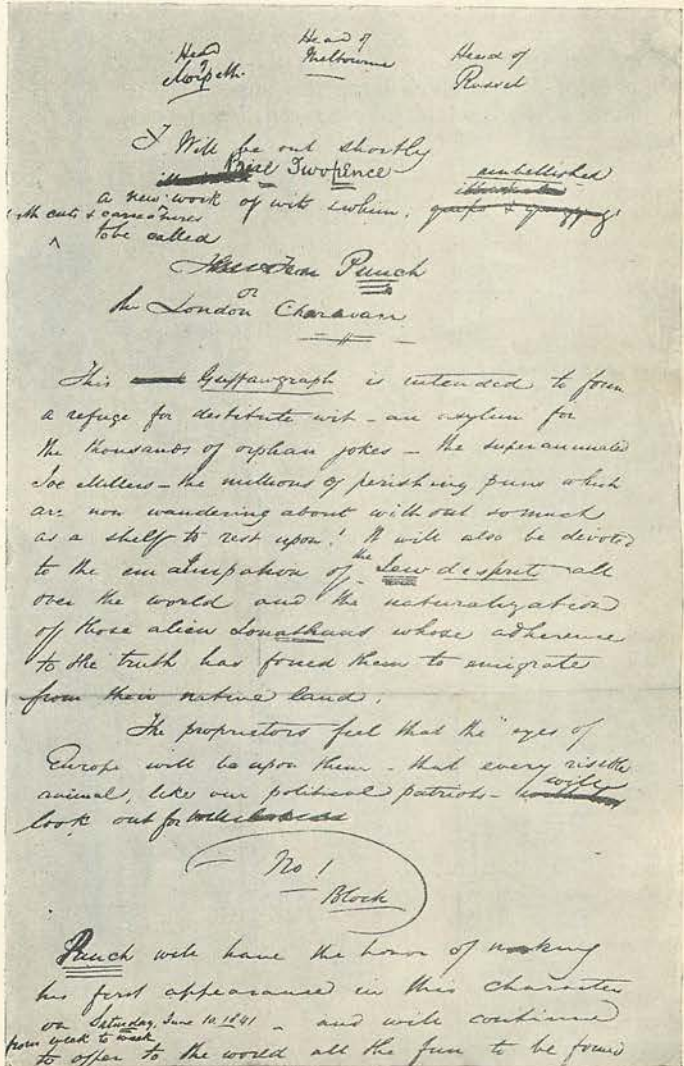 Head of Morpeth.
Head of Melbourne
Head of Russel
Will be out shortly
Price Twopence
embellished
a new work of wit & whim,
with cuts & caricatures
to be called
Punch
or
the London Charavari
This Guffawgraph is intended to form
a refuge for destitute wit – an asylum for
the thousands of orphan jokes – the superannuated
Joe Millers – the millions of perishing puns which
are now wandering about without so much
as a shelf to rest upon! It will also be devoted
to the emancipation of the Jew d'esprits all
over the world and the naturalization
of those alien Jonathans whose adherence
to the truth has forced them to emigrate
from their native land.
The proprietors feel that the "eyes of
Europe will be upon them – that every risible
animal, like our political patriots – will
look out for
No 1
Block
Punch will have the honor of making
his first appearance in this character
on Saturday, June 10. 1841 – and will continue
from week to week
to offer to the world all the fun to be found